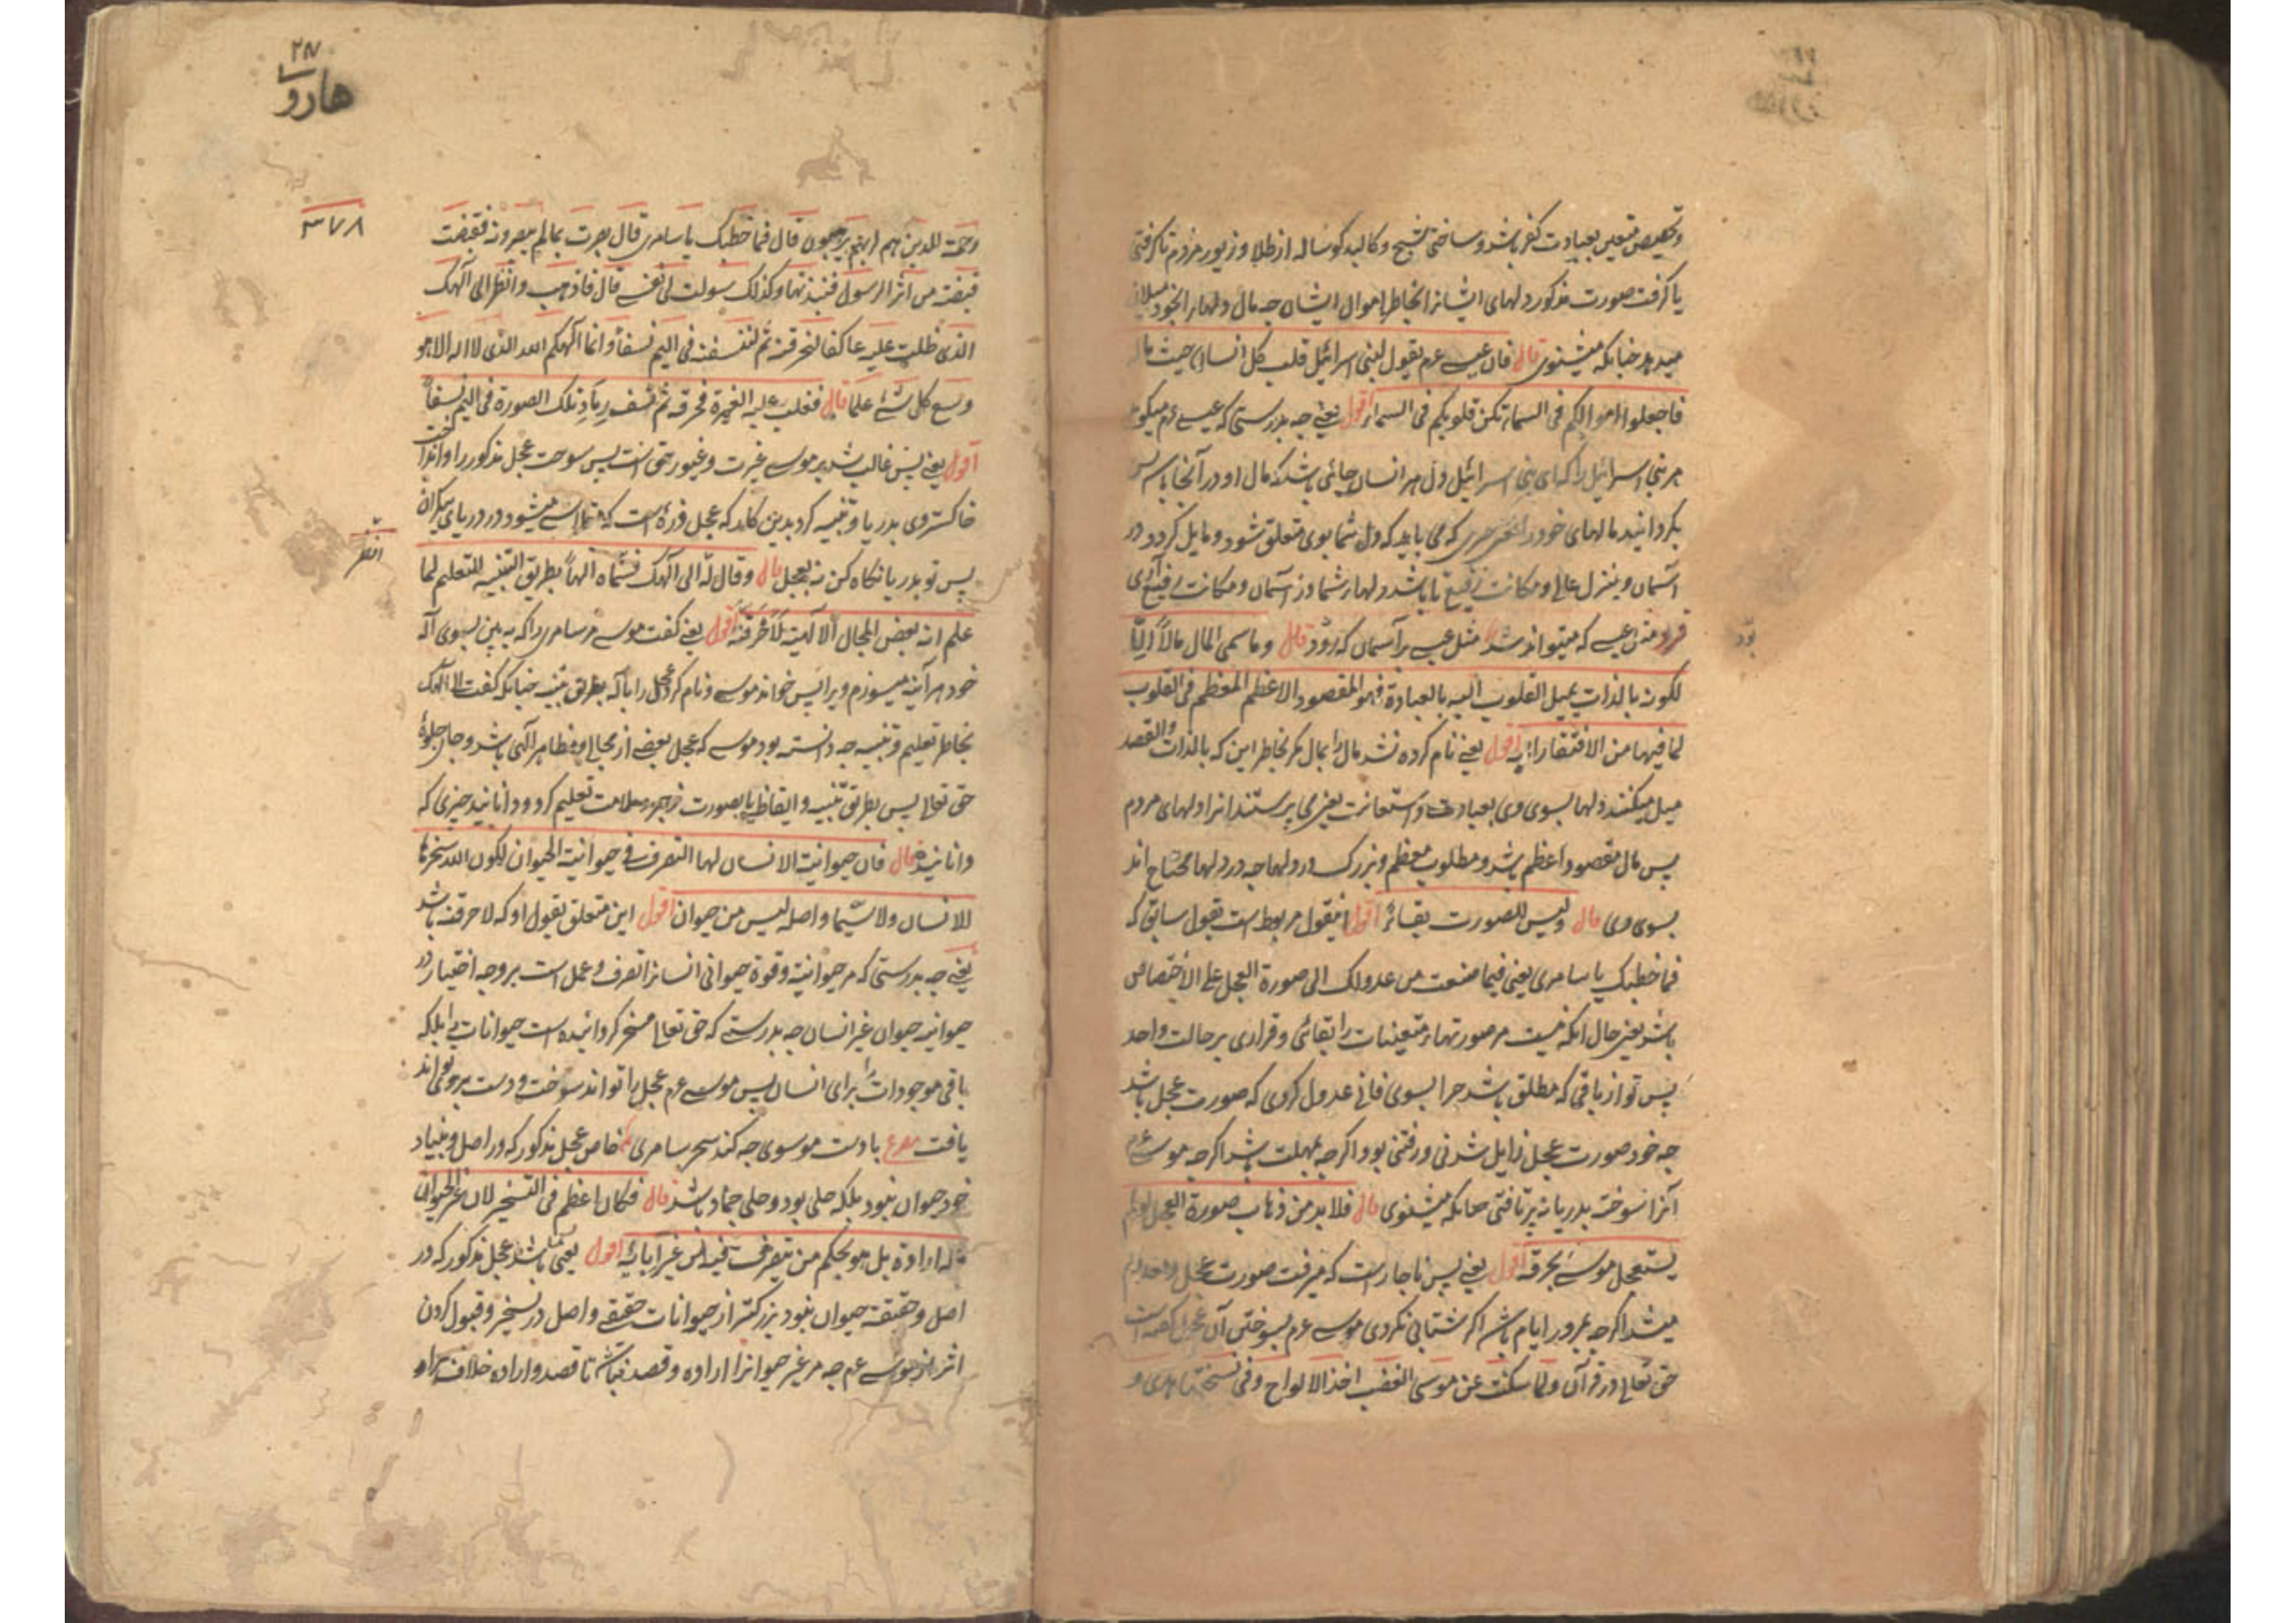 وتخصیص متعین بعبادت کفر باشد و ساختی شبح و کالبد کوساله از طلا و زیور مردم تا کرفتی
یا کرفت صورت مذکور دلهای ایشانرا بخاطر اموال ایشان چه مال دلها را بخود میلان
میدهد چنانکه میشنوی قال فان عیسی عم یقول لبنی اسرائیل قلب کل انسان حیث ماله
فاجعلوا اموالکم فی السماء تکن قلوبکم فی السماء اقول یعنی چه بدرستی که عیسی عم میکوید
مر بنی اسرائیل را که ای بنی اسرائیل دل هر انسان جائی باشد که مال او در آنجا پس
بکردانید مالهای خود را که می باید که دل شما بوی متعلق شود و مایل کردد در
آسمان و منزل عالی و مکانت رفیع تا باشد دلهاء شما در آسمان و مکانت رفیع
عیسی که میتواند شد مثل عیسی بر آسمان که رود قال وما سمی المال مالا الا
لکونه بالذات یمیل القلوب الیه بالعبادة فهو المقصود الاعظم المعظم فی القلوب
لما فیها من الافتقار الیه اقول یعنی نام کرده نشد مال را بمال مکر بخاطر این که بالذات والقصد
میل میکنند دلها بسوی وی بعبادت و استعانت یعنی می پرستند انرا دلهای مردم
پس مال مقصود اعظم باشد و مطلوب معظم و بزرک در دلها چه در دلها محتاج اند
بسوی وی قال ولیس للصورت بقاء اقول اینقول مربوط است بقول سابق که
فما خطبک یا سامری یعنی فیما صنعت من عدولک الی صورة العجل علی الاختصاص
باشد یعنی حال آنکه نیست مر صورتهاء متعینات را بقائی و قراری بر حالت واحد
پس تو از باقی که مطلق باشد چرا بسوی فانی عدول کردی که صورت عجل باشد
چه خود صورت عجل زایل شدنی و رفتنی بود اکرچه بمهلت باشد اکرچه موسی عم
آنرا نسوخته بدریا نه پرتافتی چنانکه میشنوی قال فلا بد من ذهاب صورة العجل لو لم
یستعجل موسی بحرقه اقول یعنی پس ناچار است که میرفت صورت عجل و معدوم
میشد اکرچه بمرور ایام باشد اکر شتابی نکردی موسی عم بسوختن آن عجل کفته است
حق تعالی در قرآن ولما سکت عن موسی الغضب اخذ الالواح وفی نسختها هدی و
بود
۲۸۷
هارو
۳۷۸
ورحمة للذین هم لربهم یرهبون قال فما خطبک یا سامری قال بصرت بما لم یبصروا به فقبضت
قبضة من اثر الرسول فنبذتها وکذلک سولت لی نفسی قال فاذهب وانظر الی آلهک
الذی ظلت علیه عاکفا لنحرقنه ثم لننسفنه فی الیم نسفا وانما آلهکم الله الذی لا اله الا هو
وسع کل شئ علما قال فغلب علیه الغیرة فحرقه ثم نسف رماد تلک الصورة فی الیم نسفا
اقول یعنی پس غالب شد بر موسی غیرت و غیور حق است پس سوخت عجل مذکور را و انداخت
خاکستر وی بدریا و تنبیه کرد بدین کار که عجل ذره است که متلاشی میشود در دریای بیکران
پس تو بدریا نکاه کن نه بعجل قال وقال له الی آلهک فسماه الها بطریق التنبیه للتعلیم لما
انظر
علم انه بعض المجالی الالهیة لاحرقنه اقول یعنی کفت موسی مر سامری را که به بین بسوی آله
خود هر آینه میسوزم ویرا پس خواند موسی و نام کرد عجل را بآله بطریق تنبیه چنانکه کفت الی آلهک
بخاطر تعلیم و تنبیه چه دانسته بود موسی که عجل بعضی از مجالی و مظاهر آلهی باشد و جای جلوهٔ
حق تعالی پس بطریق تنبیه و ایقاظ یا بصورت زجر و ملامت تعلیم کرد و دانانید چیزی که
دانانید قال فان حیوانیة الانسان لها التصرف فی حیوانیة الحیوان لکون الله سخرها
للانسان ولا سیما واصله لیس من حیوان اقول این متعلق بقول او که لاحرقنه باشد
یعنی چه بدرستی که مر حیوانیة و قوة حیوانی انسانرا تصرف و عمل است بر وجه اختیار در
حیوانیه حیوان غیر انسان چه بدرستی که حق تعالی مسخر کردانیده است حیوانات را بلکه
باقی موجودات را برای انسان پس موسی عم عجل را تواند سوخت و دست برو تواند
یافت مصرع با دست موسوی چه کند سحر سامری خاص عجل مذکور که در اصل و بنیاد
خود حیوان نبود بلکه حلی بود و حلی جماد باشد قال فکان اعظم فی التسخیر لان غیر الحیوان
ما له ارادة بل هو بحکم من یتصرف فیه من غیر ابائه اقول یعنی باشد عجل مذکور که در
اصل و حقیقة حیوان نبود بزرکتر از حیوانات حقیقی و اصل در تسخیر و قبول کردن
اثر از موسی عم چه مر غیر حیوانرا اراده و قصد نباشد تا قصد و اراده خلاف مراد